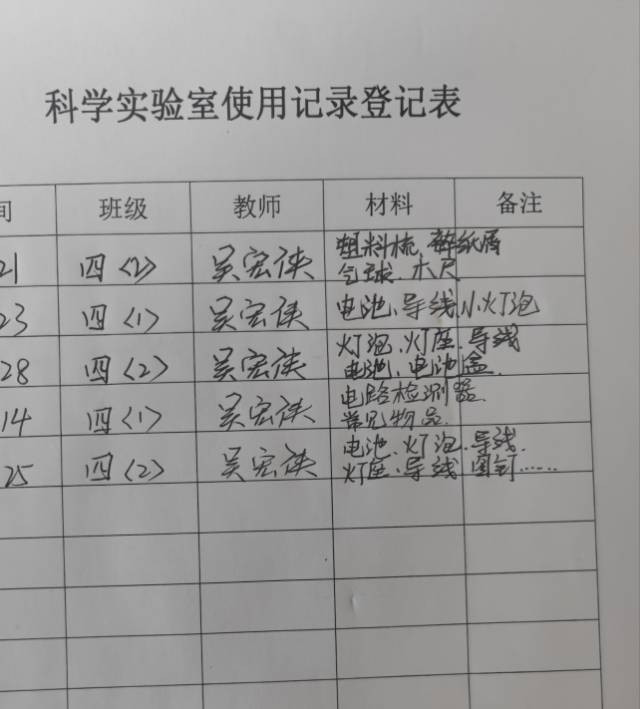 科学实验室使用记录登记表
间 班级 教师 材料 备注
21 四<2> 吴宏侠 塑料梳、碎纸屑
气球、木尺
23 四<1> 吴宏侠 电池、导线、小灯泡
28 四<2> 吴宏侠 灯泡、灯座、导线
电池、电池盒.
14 四<1> 吴宏侠 电路检测器.
常见物品.
25 四<2> 吴宏侠 电池、灯泡、导线.
灯座、导线 图钉……